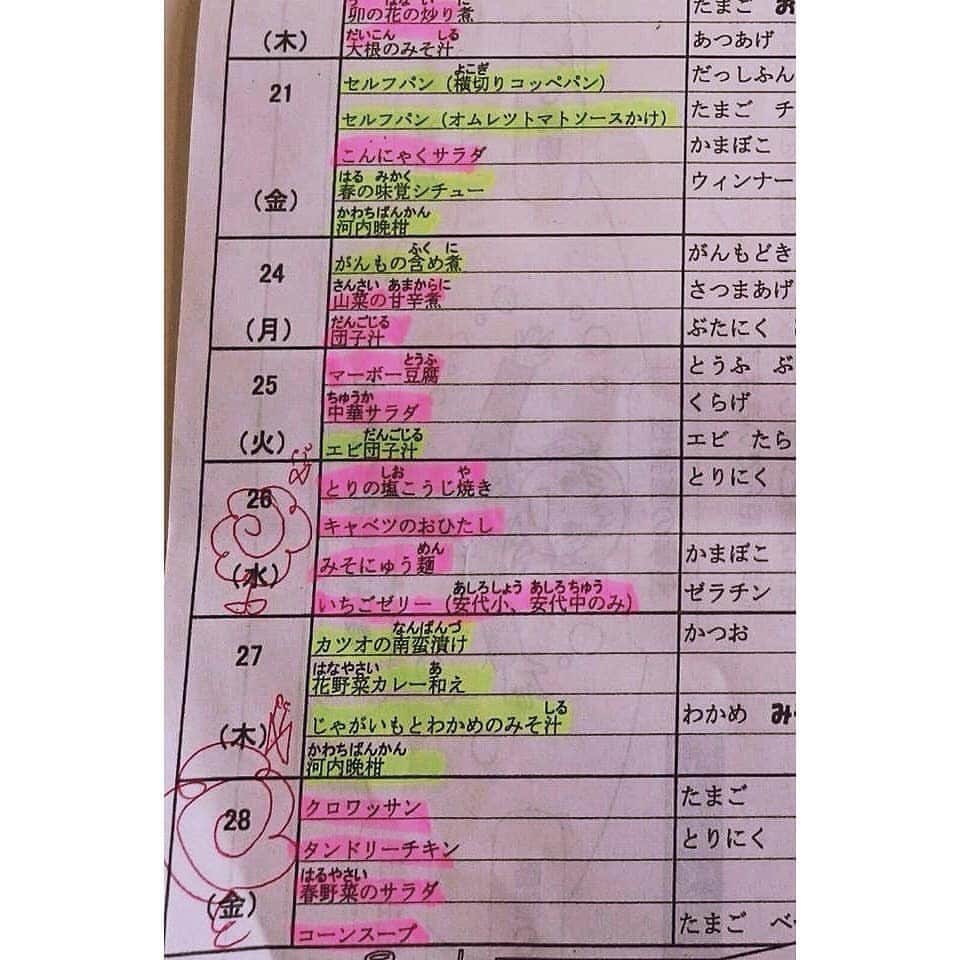 卯の花の炒り煮 たまご
(木) だいこん しる
大根のみそ汁 あつあげ
21 よこぎ
セルフパン(横切りコッペパン) だっしふん
セルフパン(オムレツトマトソースかけ) たまご チ
こんにゃくサラダ かまぼこ
(金) はる みかく
春の味覚シチュー ウィンナー
かわちばんかん
河内晩柑
24 ふく に
がんもの含め煮 がんもどき
さんさい あまからに
山菜の甘辛煮 さつまあげ
(月) だんごじる
団子汁 ぶたにく
25 とうふ
マーボー豆腐 とうふ ぶ
ちゅうか
中華サラダ くらげ
(火) だんごじる
エビ団子汁 エビ たら
26 しお や
とりの塩こうじ焼き とりにく
キャベツのおひたし
(水) めん
みそにゅう麺 かまぼこ
あしろしょう あしろちゅう
いちごゼリー(安代小、安代中のみ) ゼラチン
27 なんばんづ
カツオの南蛮漬け かつお
はなやさい あ
花野菜カレー和え
(木) しる
じゃがいもとわかめのみそ汁 わかめ み
かわちばんかん
河内晩柑
28 クロワッサン たまご
タンドリーチキン とりにく
(金) はるやさい
春野菜のサラダ
コーンスープ たまご ベ